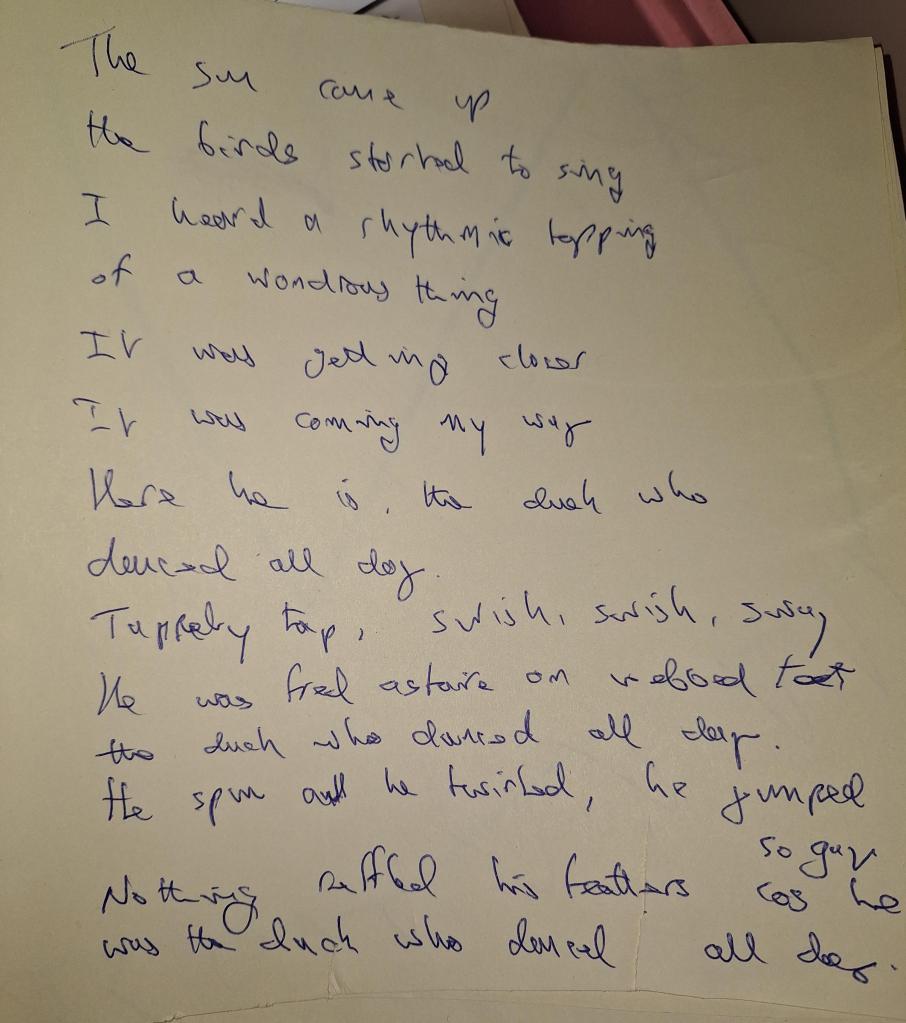 The sun came up
the birds started to sing
I heard a rhythmic tapping
of a wondrous thing
It was getting closer
It was coming my way
Here he is, the duck who
danced all day.
Tappety tap, swish, swish, sway
He was fred astaire on webbed feet
the duck who danced all day.
He spun and he twirled, he jumped
so gay
Nothing ruffled his feathers cos he
was the duck who danced all day.